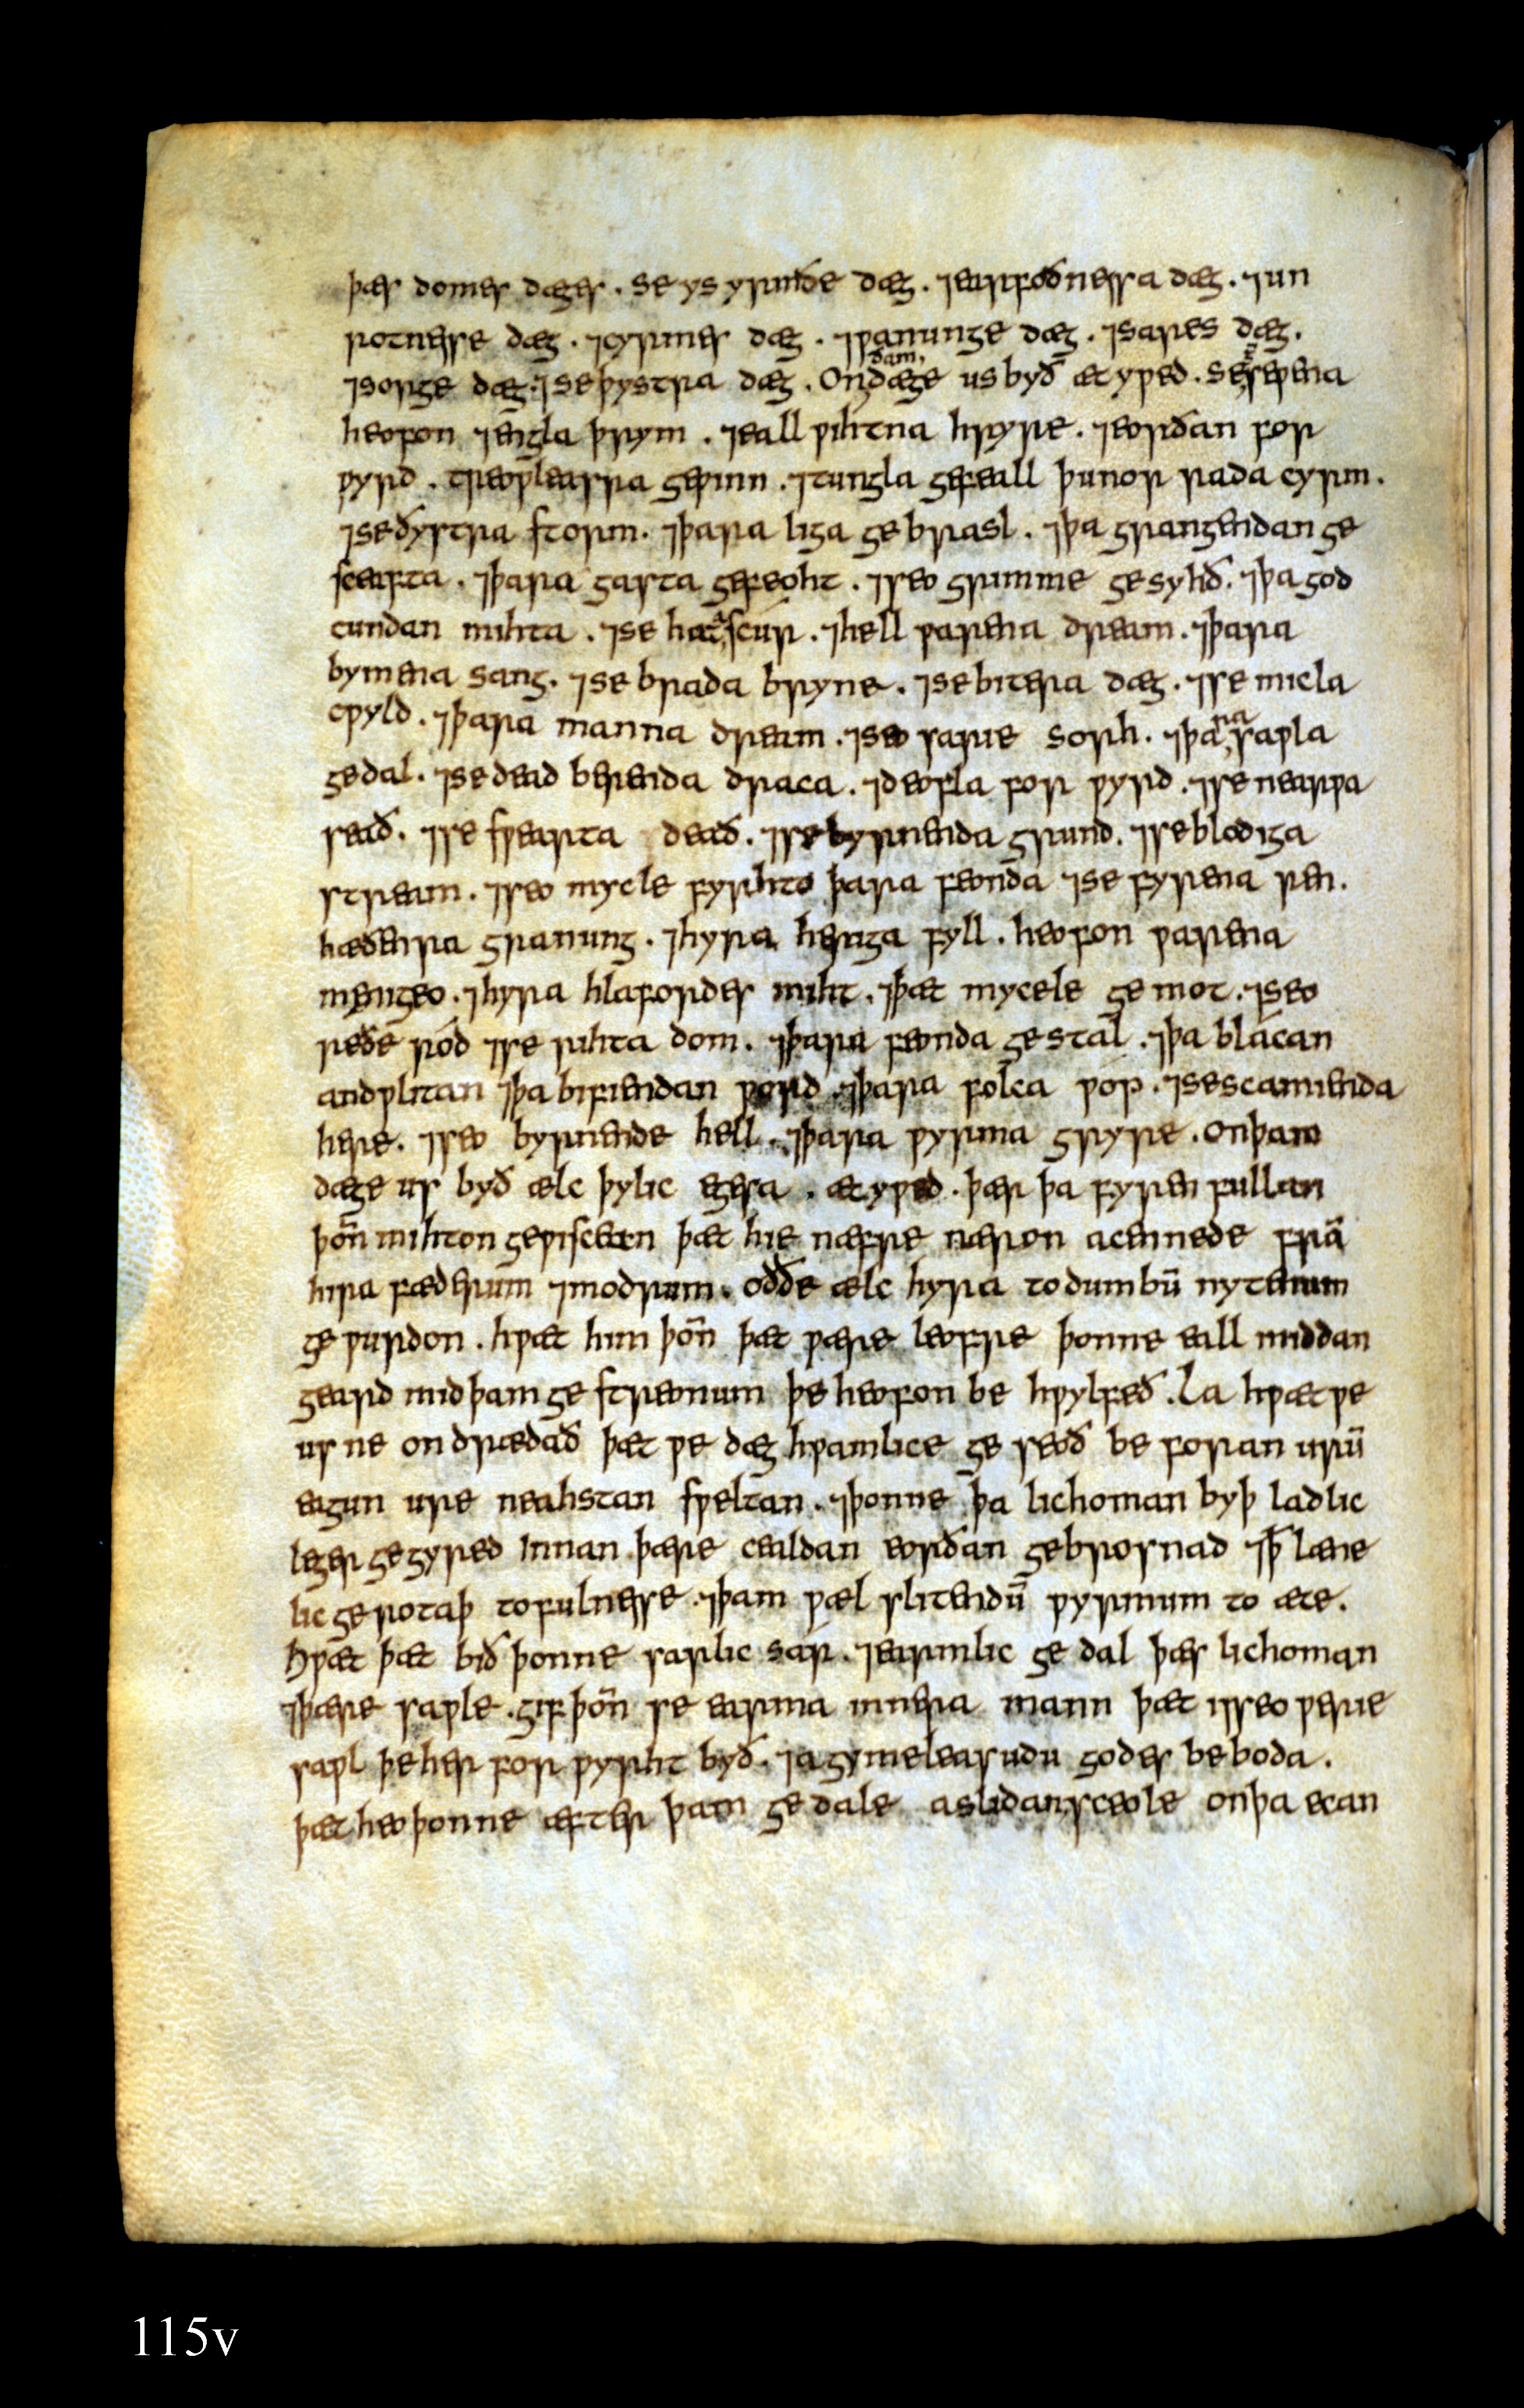 þæs domes dæges . se ys yrmðe dæg . ⁊earfoðnessa dæg . ⁊un
rotnesse dæg . ⁊cyrmes dæg . ⁊ƿanunge dæg . ⁊sares dæg .
⁊sorge dæg . ⁊se þystra dæg . On ðam dæge us byð ætyƿed . se
heofon ⁊engla þrym . ⁊eall ƿihtna hryre . ⁊eorðan for
ƿyrd . treoƿleasra geƿinn . ⁊tungla gefeall þunor rada cyrm .
⁊se ðystra storm . ⁊þara liga ge brasl . ⁊þa grangendan ge
sceafta . ⁊þara gasta gefeoht . ⁊seo grimme ge syhð . ⁊þa god
cundan mihta . ⁊se hata scur . ⁊hell ƿarena dream . ⁊þara
bymena sang . ⁊se brada bryne . ⁊se bitera dæg . ⁊se micla
cƿyld . ⁊þara manna dream . ⁊seo sarie sorh . ⁊þara saƿla
gedal . ⁊se deað berenda draca . ⁊deofla for ƿyrd . ⁊se nearƿa
seað . ⁊se sƿearta deað . ⁊se byrnenda grund . ⁊se blodiga
stream . ⁊seo mycle fyrhto þara feonda ⁊se fyrena ren .
hæðenra granung . ⁊hyra heriga fyll . heofon ƿarena
mengeo . ⁊hyra hlafordes miht . ⁊þæt mycele ge mot . ⁊seo
reðe ród ⁊se rihta dom . ⁊þara feonda ge stal . ⁊þa blácan
andƿlitan ⁊þa bifiendan ƿord . ⁊þara folca ƿop . ⁊se scamienda
here . ⁊seo byrnende hell . ⁊þara ƿyrma gryre . on þam
dæge us byð ælc þylic egesa . ætyƿed . þær þa fyren fullan
þoñ mihton geƿiscean þæt hie næfre næron acennede frā
hira fæderum ⁊modrum . oððe ælc hyra to dumbū nytenum
ge ƿurdon . hƿæt him þoñ þæt ƿære leofre þonne eall middan
geard mid þam ge streonum þe heofon be hƿylfeð . La hƿæt ƿe
us ne on drædað þæt ƿe dæg hƿamlice ge seoð be foran urū
eagun ure neahstan sƿeltan . ⁊þonne þa lichoman byþ ladlic
leger ge gyred Innan þære cealdan eorðan gebrosnad ⁊þ̄ læne
lic ge rotaþ to fulnesse . ⁊þam ƿæl slitendū ƿyrmum to æte .
Hƿæt þæt bið þonne sarlic sár . ⁊earmlic ge dal þæs lichoman
⁊þære saƿle . gif þoñ se earma innera mann þæt is seo ƿerie
saƿl þe her for ƿyrht byð . ⁊a gymeleasudu godes be boda .
þæt heo þonne æfter þam ge dale aslidan sceole on þa ecan